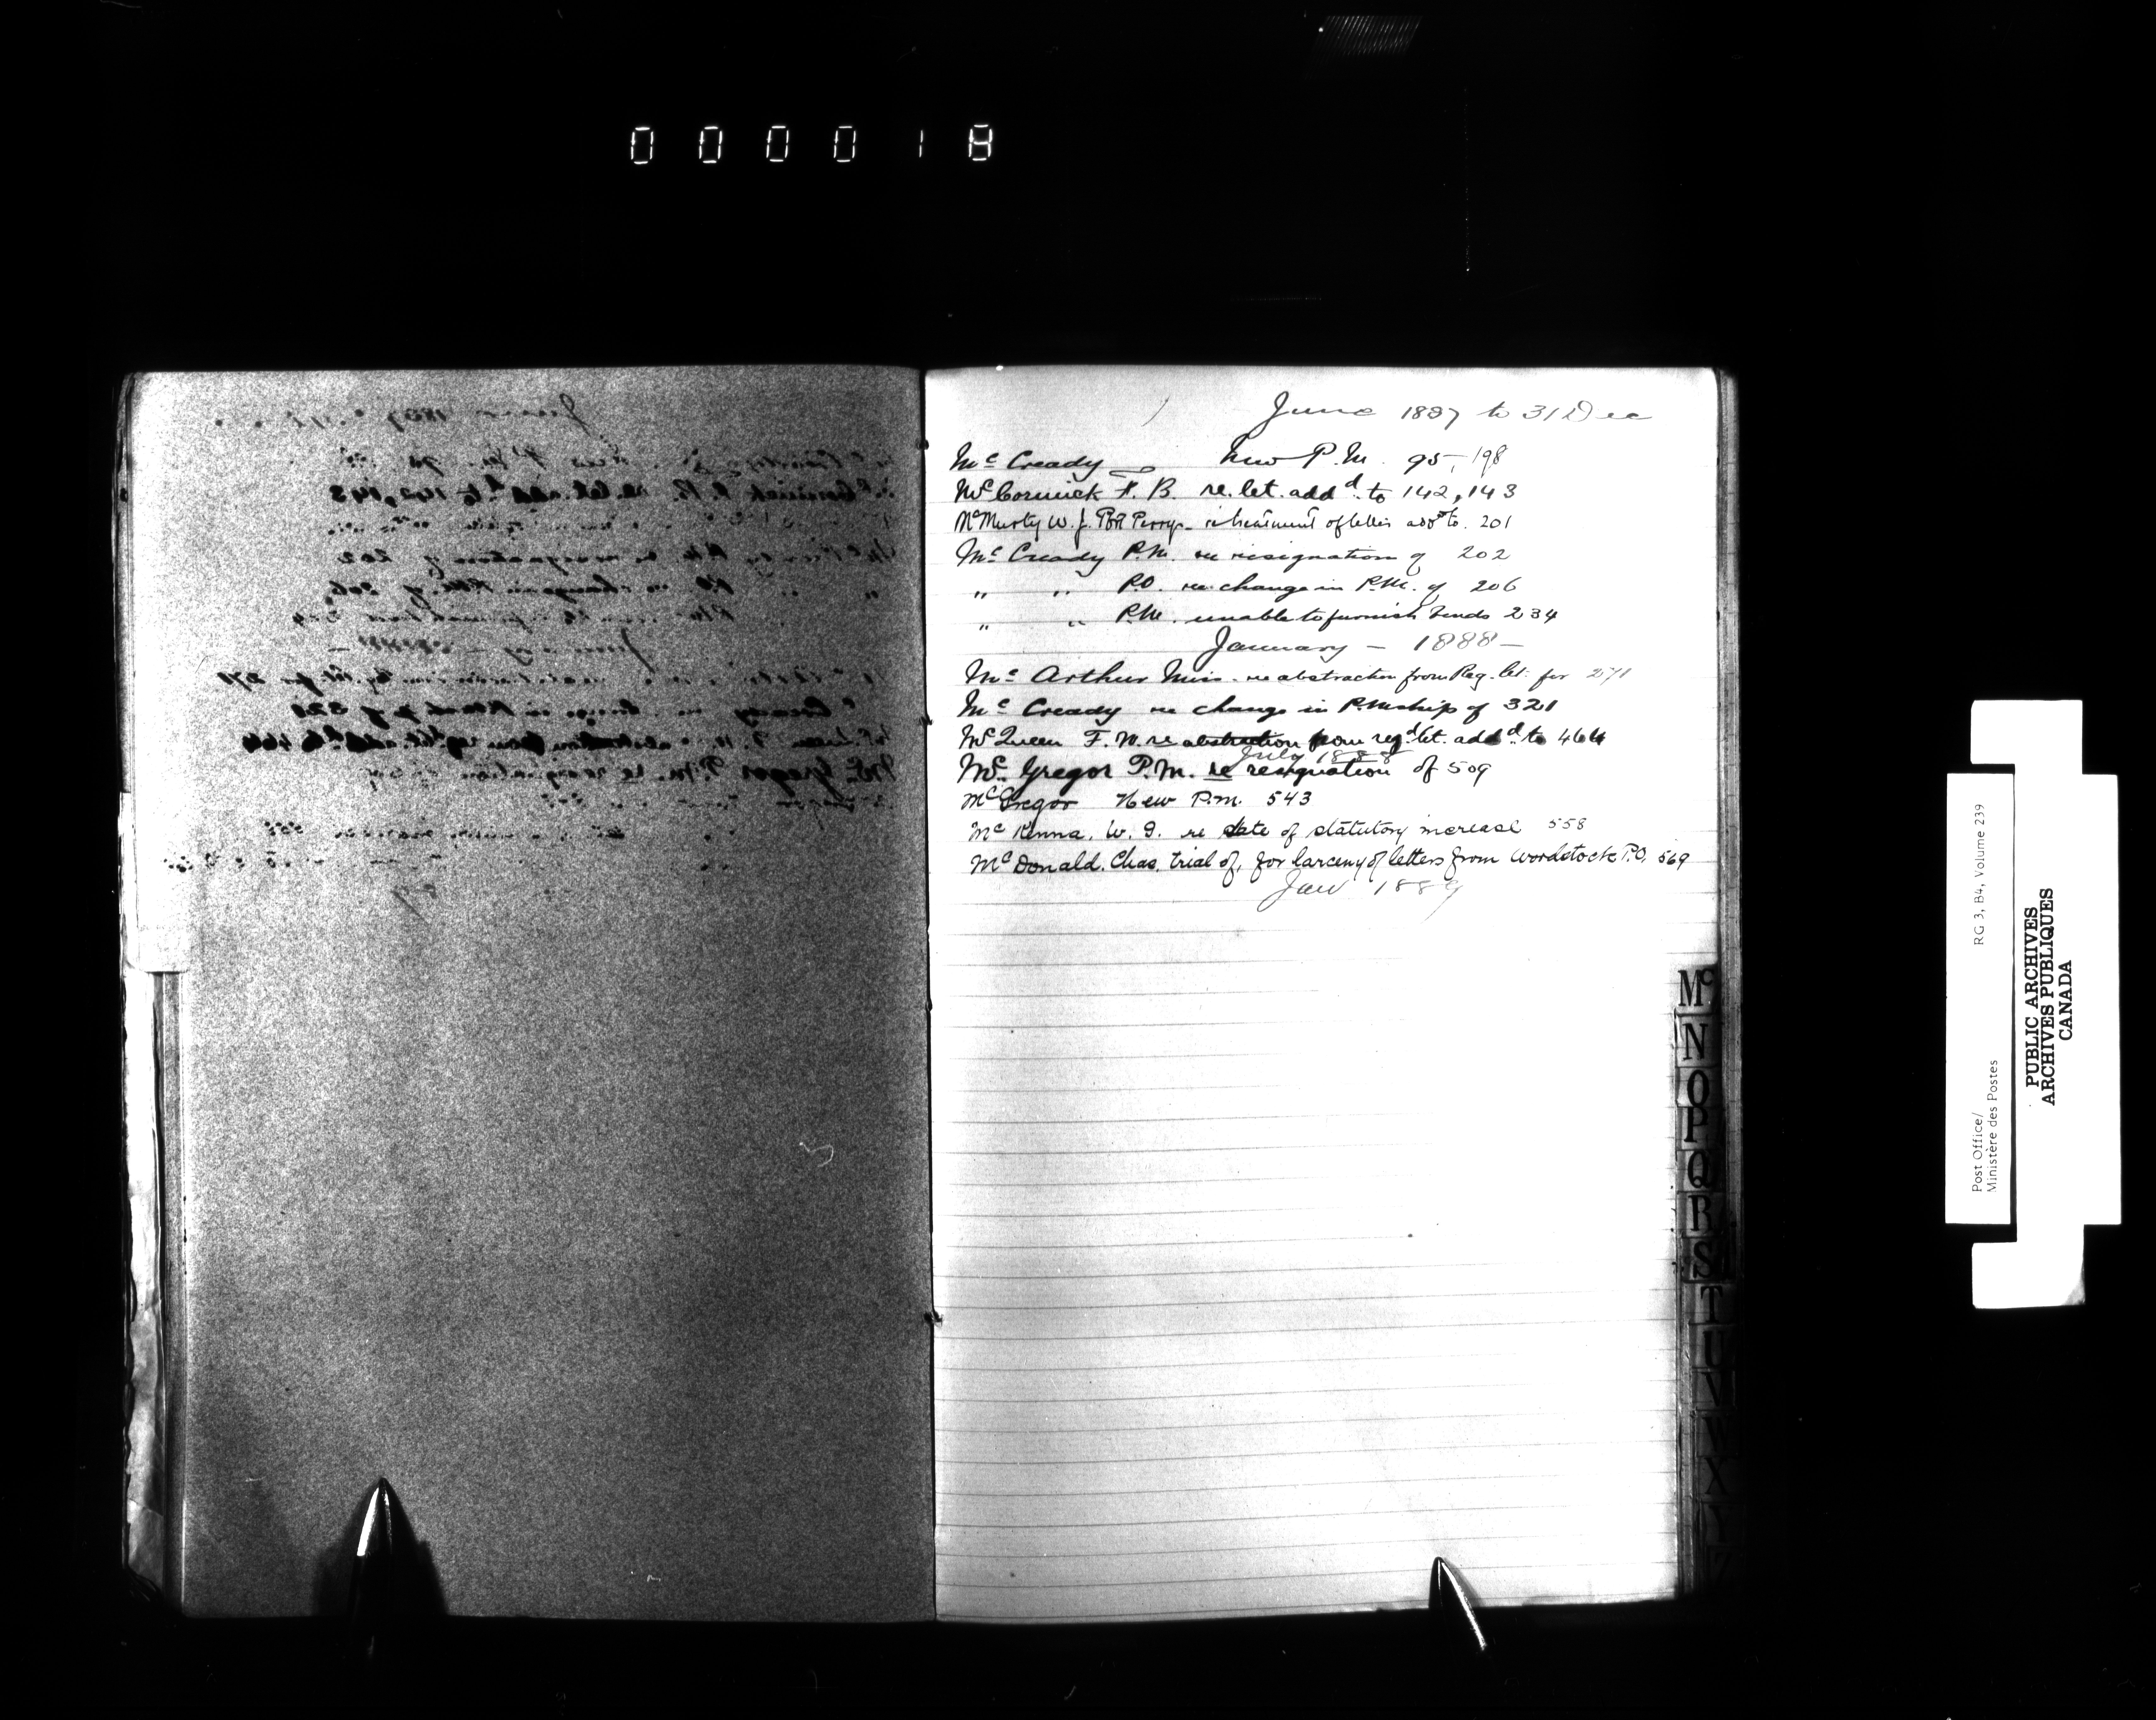 000018
June 1887 to 31 Dec
Mc Cready New P.M. 95, 198
Mc Cormick F. B. re. let. addd. to 142, 143
McMurty W. J. Port Perry - re treatment of letter addd to. 201
Mc Cready P.M. re resignation of 202
" " P.O. re change in P.M. of 206
" " P.M. unable to furnish bonds 234
January - 1888 -
Mc Arthur Miss. re abstraction from Reg. let. for 271
Mc Cready re change in P.Mship of 321
Mc Queen F. W. re abstraction from regd let. addd. to 464
July 1888
Mc. Gregor P.M. re resignation of 509
McGregor New P.M. 543
Mc Kenna. W. I. re date of statutory increase 558
Mc Donald. Chas. trial of, for larceny of letters from Woodstock P.O. 569
Jan 1889
Mc
N
O
P
Q
R
S
T
U
V
W
X
Y
Z
Post Office/
Ministère des Postes
RG 3, B4, Volume 239
PUBLIC ARCHIVES
ARCHIVES PUBLIQUES
CANADA